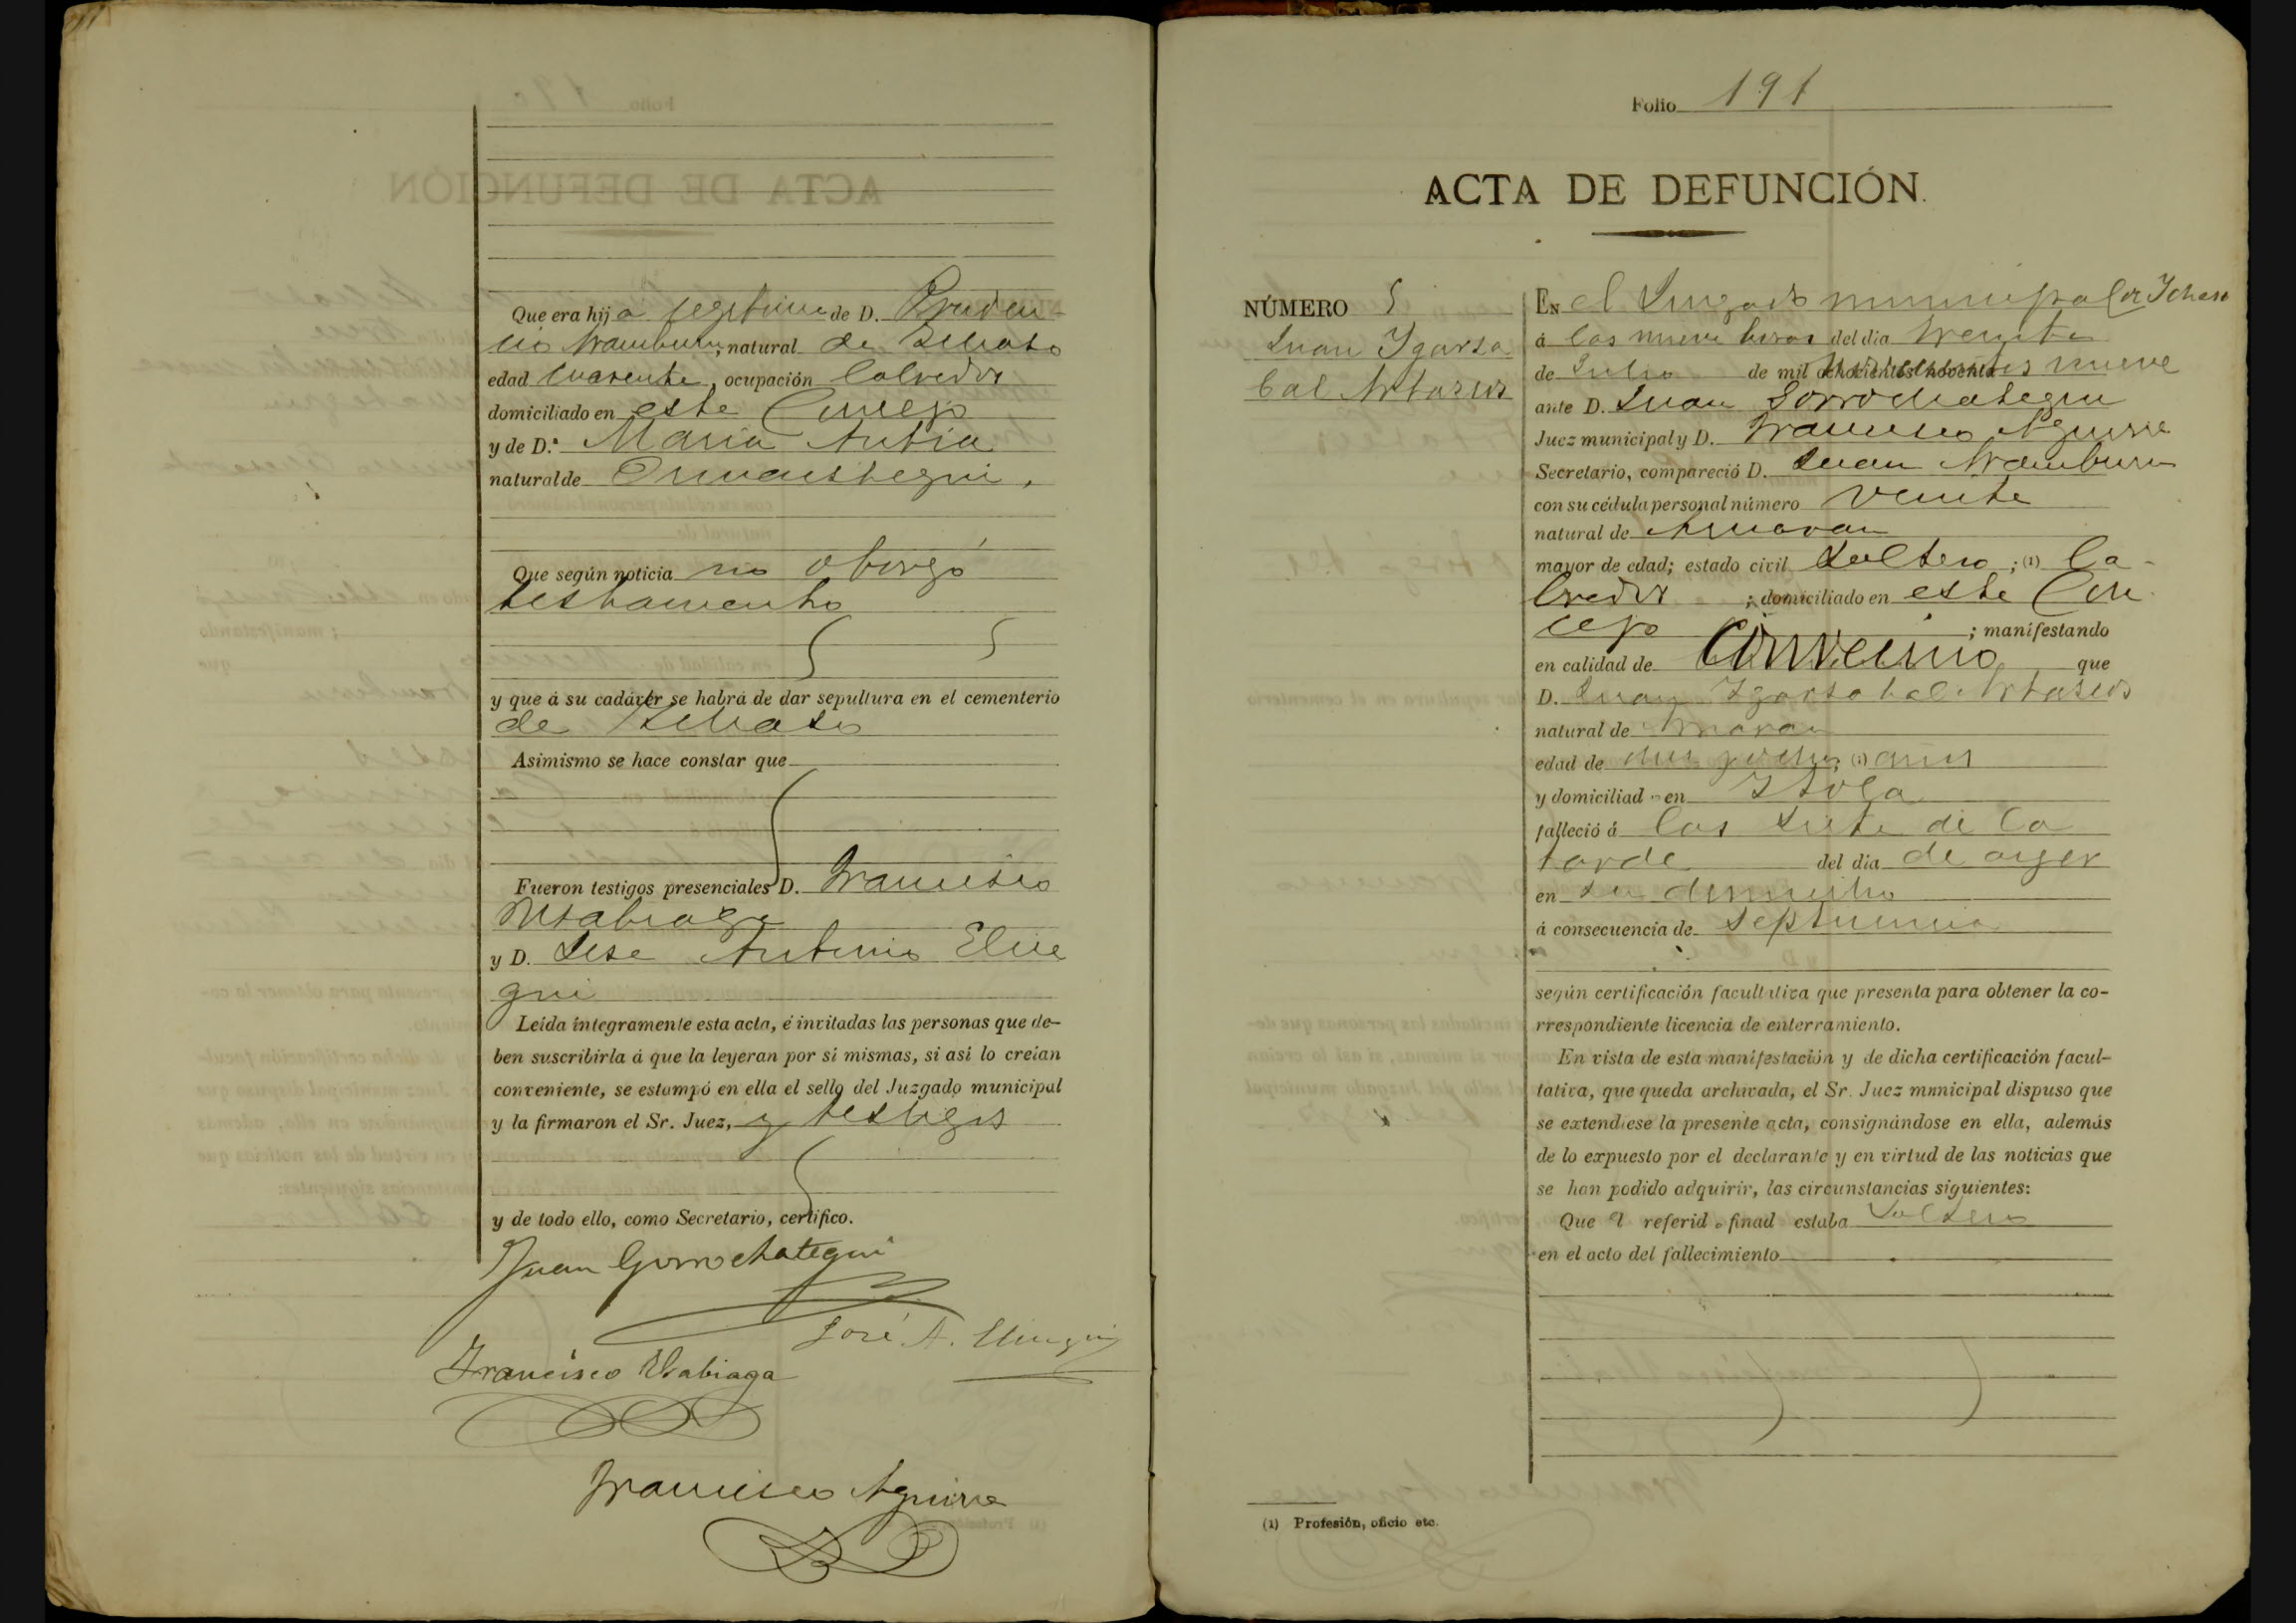 Que era hija legitima de D. Pruden-
cio Aramburu, natural de Ichaso
edad cuarenta, ocupación Labrador
domiciliado en este Concejo
y de D.ª Maria Antia
natural de Ormaiztegui.
Que según noticia no otorgó
testamento
y que á su cadáver se habrá de dar sepultura en el cementerio
de Ichaso
Asimismo se hace constar que
Fueron testigos presenciales D. Francisco
Usabiaga
y D. Jose Antonio Elice
gui
Leída íntegramente esta acta, é invitadas las personas que de-
ben suscribirla á que la leyeran por sí mismas, si así lo creían
conveniente, se estampó en ella el sello del Juzgado municipal
y la firmaron el Sr. Juez, y testigos
y de todo ello, como Secretario, certifico.
Juan Gorrochategui
José A.
Francisco Usabiaga
Francisco Aguirre
Folio 191
ACTA DE DEFUNCIÓN.
NÚMERO 5
Juan Ygarza
bal
EN el Juzgado municipal de Ichaso
á las nueve horas del dia treinta
de Julio de mil novecientos nueve
ante D. Juan Gorrochategui
Juez municipal y D. Francisco Aguirre
Secretario, compareció D. Juan Aramburu
con su cédula personal número veinte
natural de
mayor de edad; estado civil Soltero; (1) La-
brador; domiciliado en este Con
cejo; manifestando
en calidad de Convecino que
D. Juan Ygarzabal
natural de
edad de diez y ocho; (1) años
y domiciliad en
falleció á las siete de la
tarde del dia de ayer
en su domicilio
á consecuencia de Septicemia
según certificación facultativa que presenta para obtener la co-
rrespondiente licencia de enterramiento.
En vista de esta manifestación y de dicha certificación facul-
tativa, que queda archivada, el Sr. Juez municipal dispuso que
se extendiese la presente acta, consignándose en ella, además
de lo expuesto por el declarante y en virtud de las noticias que
se han podido adquirir, las circunstancias siguientes:
Que el referido finad estaba Soltero
en el acto del fallecimiento
(1) Profesión, oficio etc.